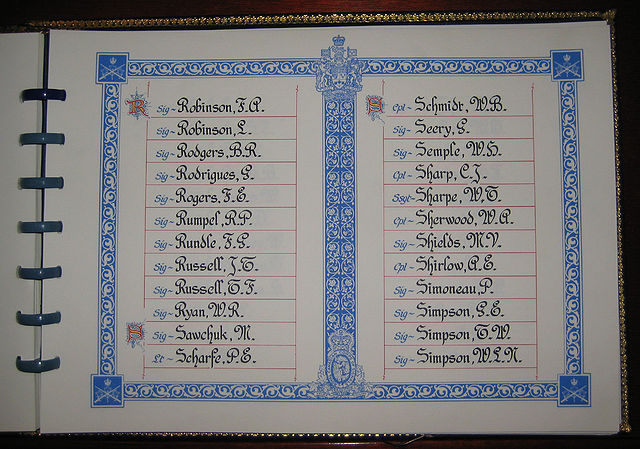 R Sig ~ Robinson, F.A.
Sig ~ Robinson, L.
Sig ~ Rodgers, B.R.
Sig ~ Rodrigues, G.
Sig ~ Rogers, F.E.
Sig ~ Rumpel, R.P.
Sig ~ Rundle, F.G.
Sig ~ Russell, J.T.
Sig ~ Russell, T.F.
Sig ~ Ryan, W.R.
S Sig ~ Sawchuk, M.
Lt ~ Scharfe, P.E.
S Cpl ~ Schmidt, W.B.
Sig ~ Seery, G.
Sig ~ Semple, W.H.
Cpl ~ Sharp, C.J.
Ssgt ~ Sharpe, W.T.
Cpl ~ Sherwood, W.A.
Sig ~ Shields, M.V.
Cpl ~ Shirlow, A.E.
Sig ~ Simoneau, P.
Sig ~ Simpson, G.E.
Sig ~ Simpson, T.W.
Sig ~ Simpson, W.L.N.